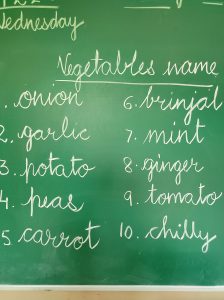 Wednesday
Vegetables name
1. onion
2. garlic
3. potato
4. peas
5. carrot
6. brinjal
7. mint
8. ginger
9. tomato
10. chilly